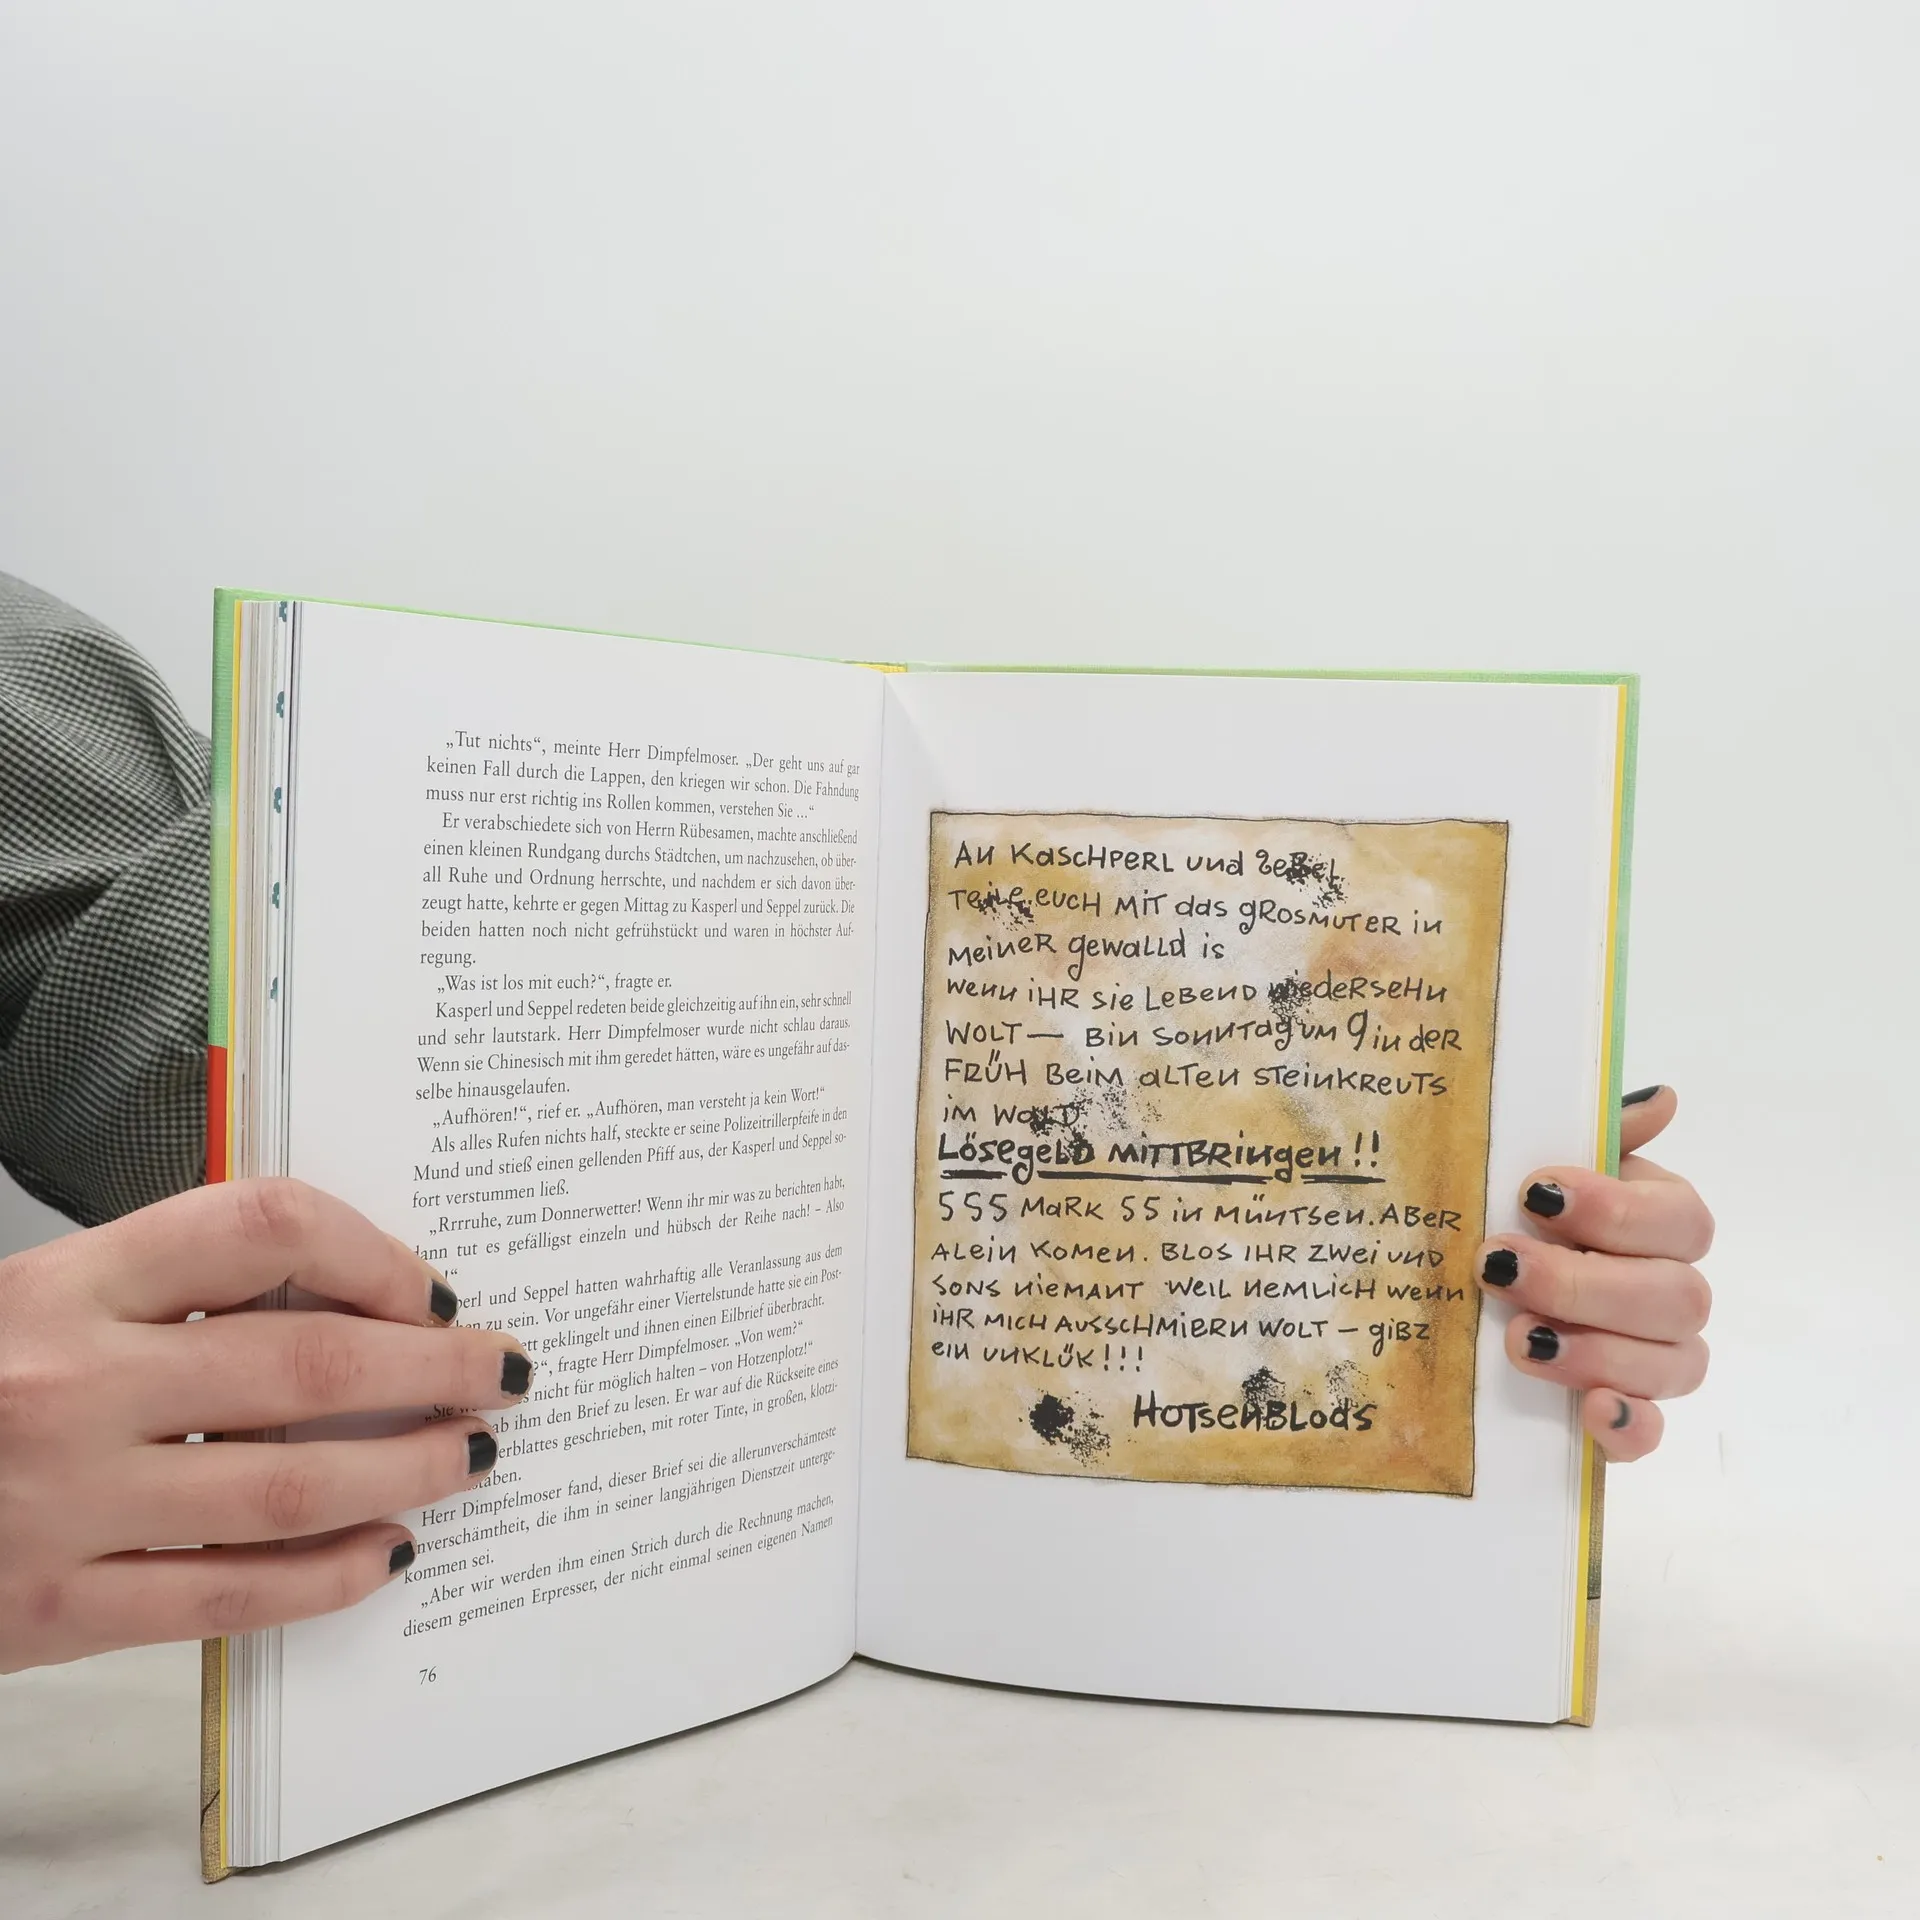 „Tut nichts“, meinte Herr Dimpfelmoser. „Der geht uns auf gar
keinen Fall durch die Lappen, den kriegen wir schon. Die Fahndung
muss nur erst richtig ins Rollen kommen, verstehen Sie ...“
Er verabschiedete sich von Herrn Rübesamen, machte anschließend
einen kleinen Rundgang durchs Städtchen, um nachzusehen, ob über-
all Ruhe und Ordnung herrschte, und nachdem er sich davon über-
zeugt hatte, kehrte er gegen Mittag zu Kasperl und Seppel zurück. Die
beiden hatten noch nicht gefrühstückt und waren in höchster Auf-
regung.
„Was ist los mit euch?“, fragte er.
Kasperl und Seppel redeten beide gleichzeitig auf ihn ein, sehr schnell
und sehr lautstark. Herr Dimpfelmoser wurde nicht schlau daraus.
Wenn sie Chinesisch mit ihm geredet hätten, wäre es ungefähr auf das-
selbe hinausgelaufen.
„Aufhören!“, rief er. „Aufhören, man versteht ja kein Wort!“
Als alles Rufen nichts half, steckte er seine Polizeitrillerpfeife in den
Mund und stieß einen gellenden Pfiff aus, der Kasperl und Seppel so-
fort verstummen ließ.
„Rrrruhe, zum Donnerwetter! Wenn ihr mir was zu berichten habt,
dann tut es gefälligst einzeln und hübsch der Reihe nach! – Also
!“
perl und Seppel hatten wahrhaftig alle Veranlassung aus dem
zu sein. Vor ungefähr einer Viertelstunde hatte sie ein Post-
ett geklingelt und ihnen einen Eilbrief überbracht.
?“, fragte Herr Dimpfelmoser. „Von wem?“
„Sie nicht für möglich halten – von Hotzenplotz!“
ab ihm den Brief zu lesen. Er war auf die Rückseite eines
erblattes geschrieben, mit roter Tinte, in großen, klotzi-
staben.
Herr Dimpfelmoser fand, dieser Brief sei die allerunverschämteste
nverschämtheit, die ihm in seiner langjährigen Dienstzeit unterge-
kommen sei.
„Aber wir werden ihm einen Strich durch die Rechnung machen,
diesem gemeinen Erpresser, der nicht einmal seinen eigenen Namen
76
AN KASCHPERL UND SEBEL
TEILE EUCH MIT DAS GROSMUTER IN
MEINER GEWALLD IS
WENN IHR SIE LEBEND WIEDERSEHN
WOLT — BIN SONNTAG UM 9 IN DER
FRÜH BEIM ALTEN STEINKREUTS
IM WALD
LÖSEGELD MITTBRINGEN!!
555 MARK 55 IN MÜNTSEN. ABER
ALEIN KOMEN. BLOS IHR ZWEI UND
SONS NIEMANT WEIL NEMLICH WENN
IHR MICH AUSSCHMIERN WOLT — GIBZ
EIN UNKLÜK!!!
HOTSENBLODS